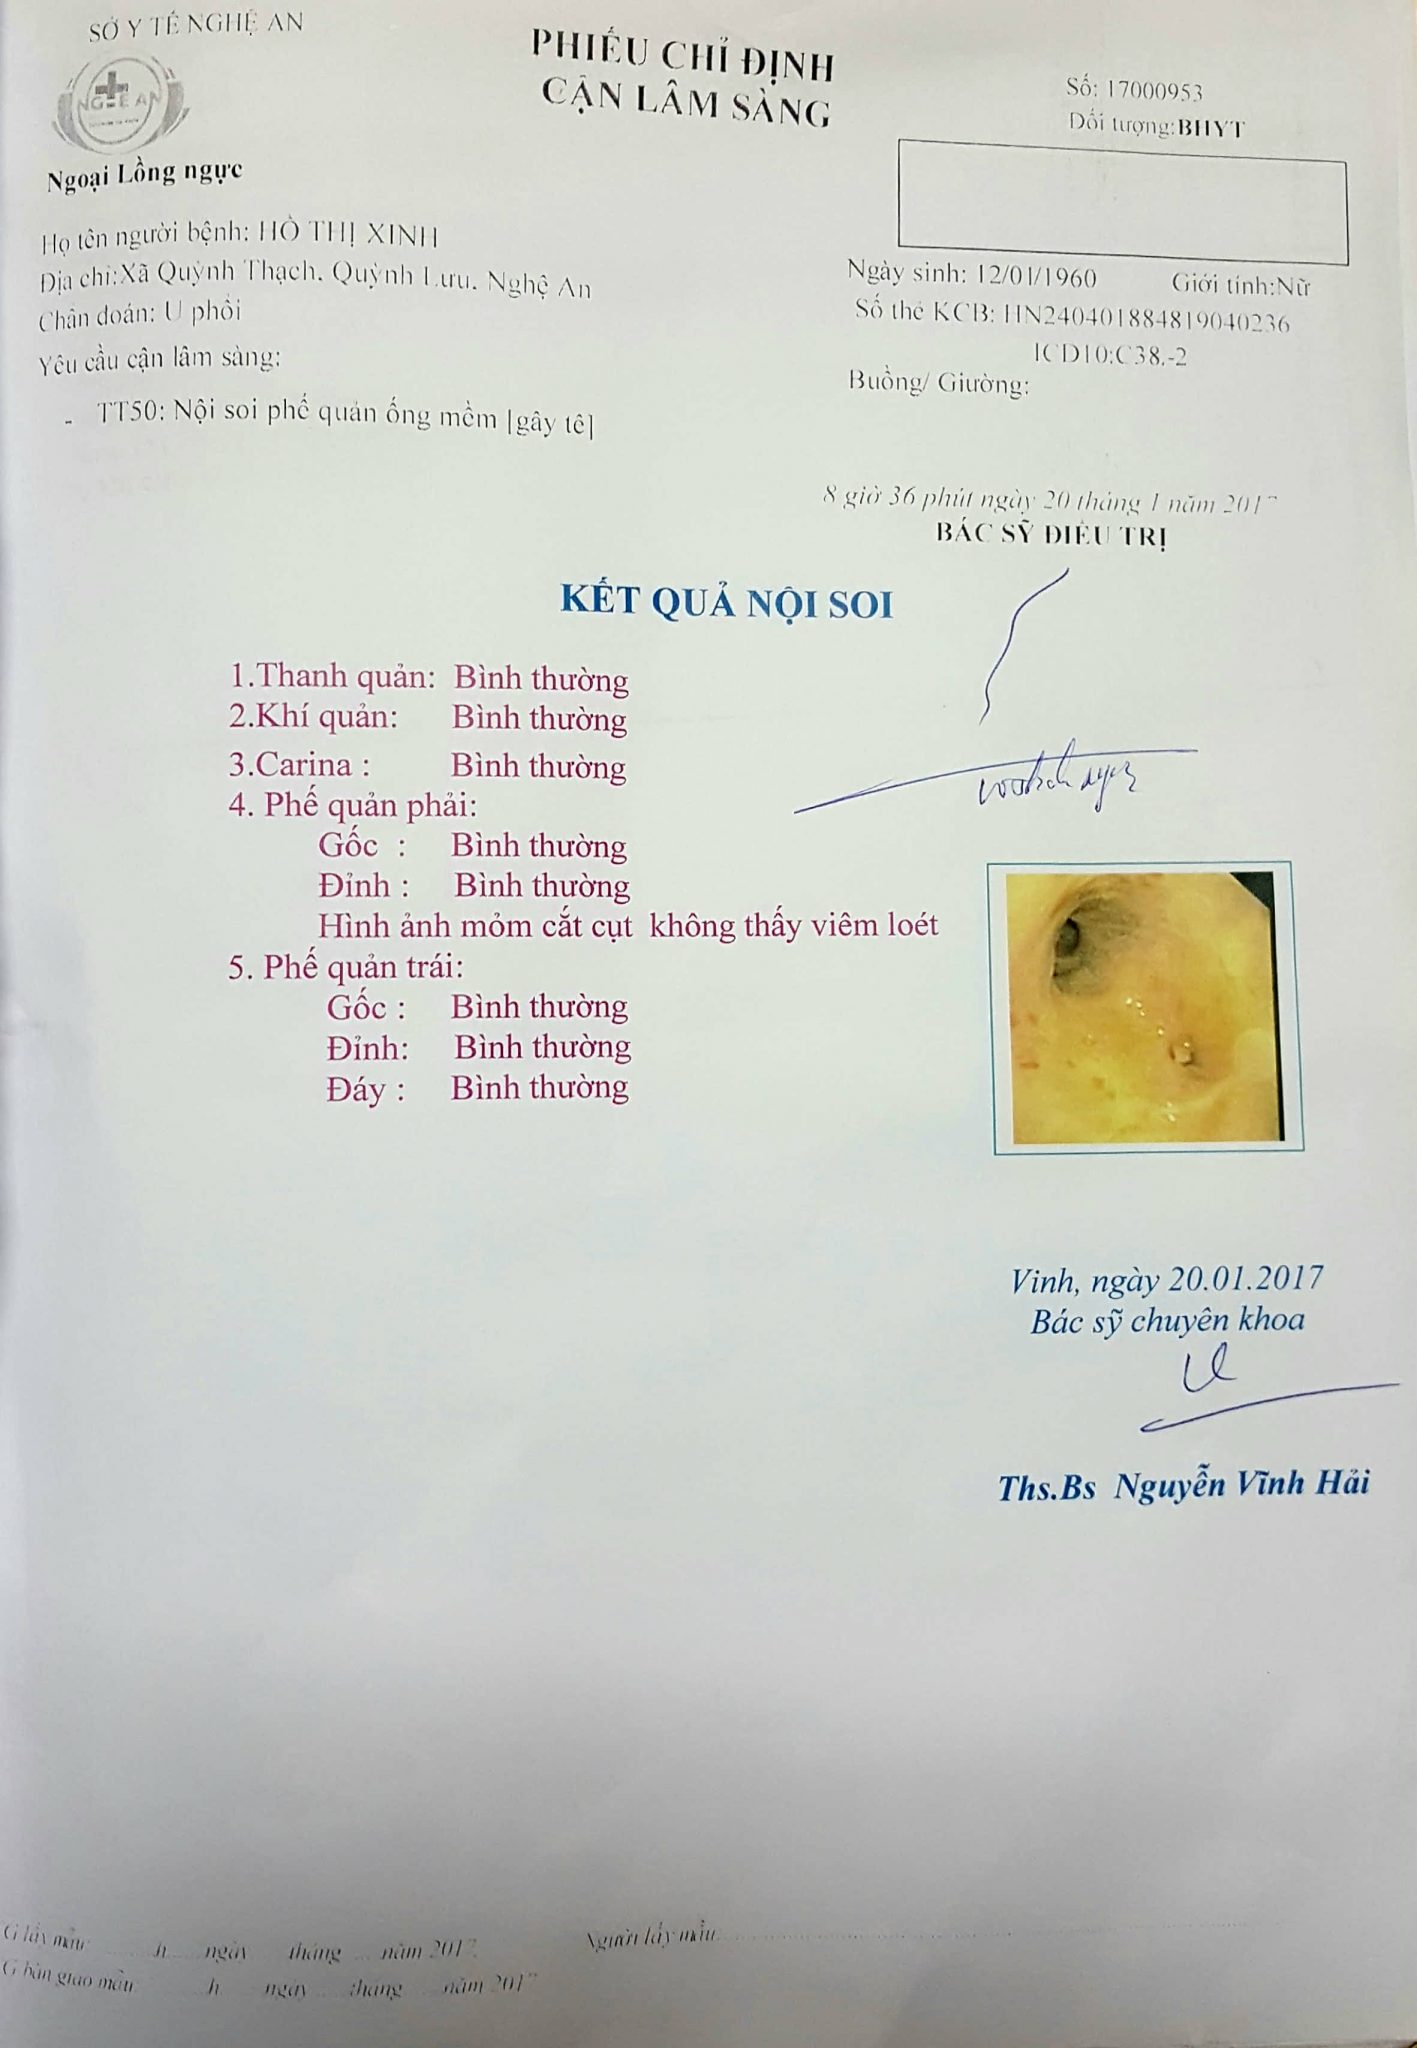 SỞ Y TẾ NGHỆ AN
PHIẾU CHỈ ĐỊNH
CẬN LÂM SÀNG
Số: 17000953
Đối tượng:BHYT
NGHỆ AN
Ngoại Lồng ngực
Họ tên người bệnh: HỒ THỊ XINH
Địa chỉ:Xã Quỳnh Thạch, Quỳnh Lưu, Nghệ An
Chẩn đoán: U phổi
Yêu cầu cận lâm sàng:
- TT50: Nội soi phế quản ống mềm [gây tê]
Ngày sinh: 12/01/1960 Giới tính:Nữ
Số thẻ KCB: HN240401884819040236
ICD10:C38.-2
Buồng/ Giường:
8 giờ 36 phút ngày 20 tháng 1 năm 2017
BÁC SỸ ĐIỀU TRỊ
KẾT QUẢ NỘI SOI
1.Thanh quản: Bình thường
2.Khí quản: Bình thường
3.Carina : Bình thường
4. Phế quản phải:
Gốc : Bình thường
Đỉnh : Bình thường
Hình ảnh mỏm cắt cụt không thấy viêm loét
5. Phế quản trái:
Gốc : Bình thường
Đỉnh: Bình thường
Đáy : Bình thường
Vinh, ngày 20.01.2017
Bác sỹ chuyên khoa
Ths.Bs Nguyễn Vĩnh Hải
G lấy mẫu ......h..... ngày ..... tháng ..... năm 2017 Người lấy mẫu
G bàn giao mẫu ......h ..... ngày ..... tháng ..... năm 2017